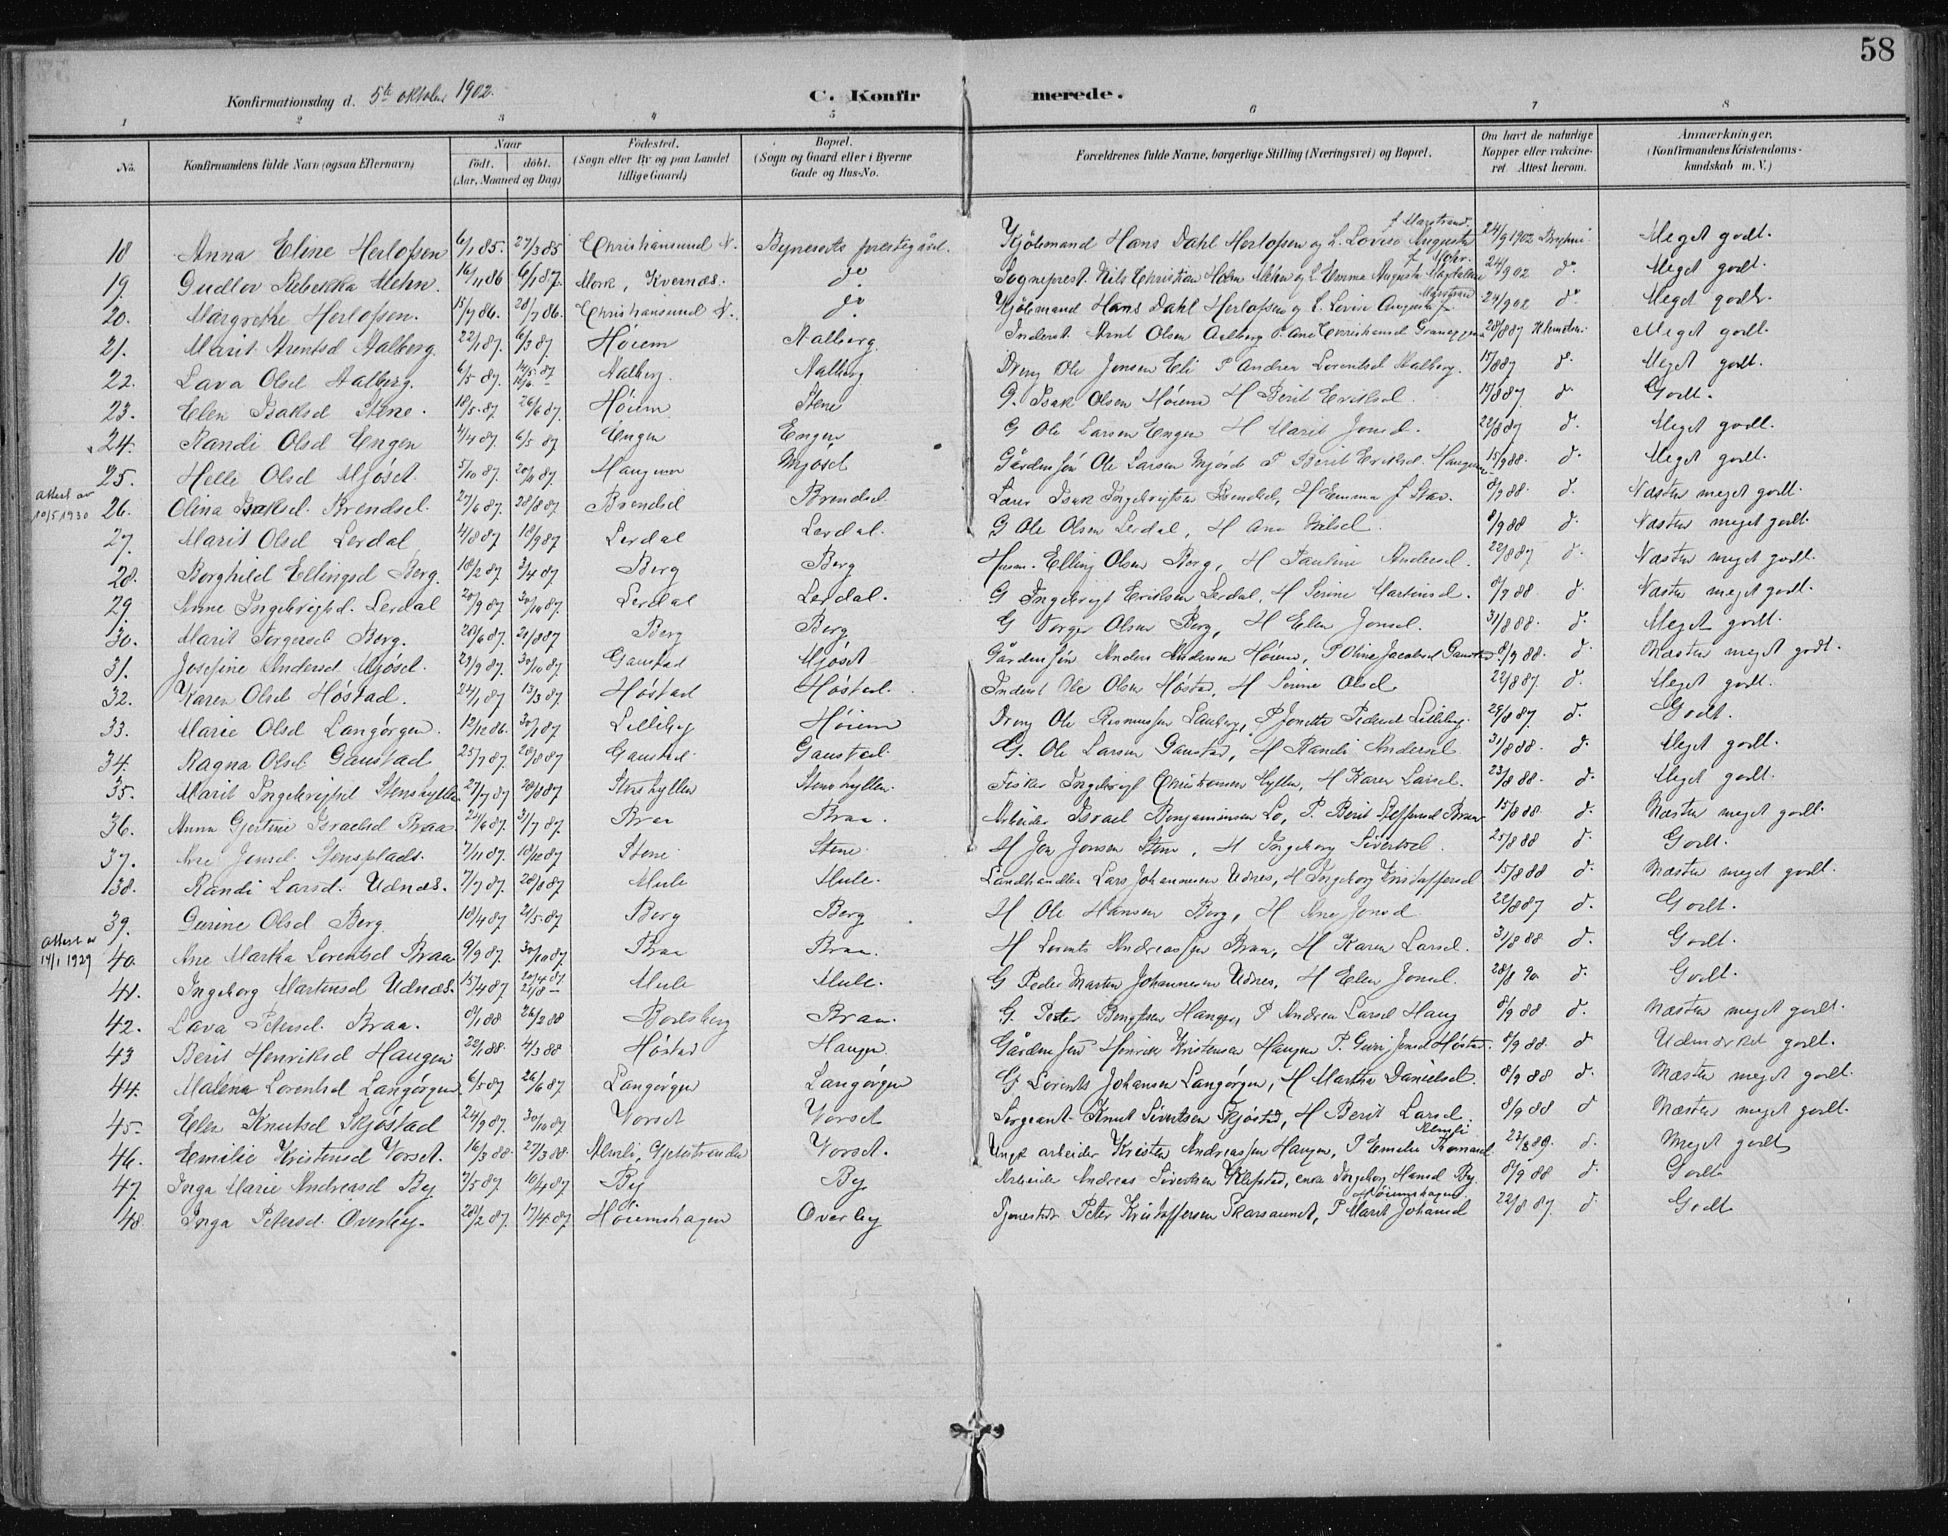 58
Konfirmationsdag d. 5te oktober 1902.
C. Konfirmerede.
1 2 3 4 5 6 7 8
No. | Konfirmandens fulde Navn (ogsaa Efternavn) | Naar født. døbt. (Aar, Maaned og Dag) | Fødested. (Sogn eller By og paa Landet tillige Gaard) | Bopæl. (Sogn og Gaard eller i Byerne Gade og Hus-No. | Forældrenes fulde Navne, borgerlige Stilling (Næringsvei) og Bopæl. | Om havt de naturlige Kopper eller vakcineret. Attest herom. | Anmærkninger. (Konfirmandens Kristendomskundskab m. V.)
18 Anna Eline Herlofsen 6/1 85. 27/3 85 Christiansund N. Bynesets prestegård. Kjöbmand Hans Dahl Herlofsen og h. Lovise Augusta f Marstrand. 24/9 1902 Meget godt.
19. Gudlov Rebekka Mehn. 16/11 86 6/1 87. Mork, Kvernæs. do Sogneprest Nils Christian Holm Mehn og h. Emma Augusta Magdalene 24/9 02 do Meget godt.
20. Margrethe Herlofsen. 15/7 86. 28/7 86. Christiansund N. do Kjöbmand Hans Dahl Herlofsen og h. Lovise Augusta f Marstrand 24/9 02 do Meget godt.
21. Marit Arentsd Aalberg. 22/1 87. 6/3 87. Høiem Aalberg. Inderst Arnt Olsen Aalberg 28/8 87 Meget godt.
22. Lava Olsd Aalberg. 6/5 87. Aalberg. Aalberg Dreng Ole Jonsen Eli P Andrea Lorentsd Aalberg. 15/8 87 d. Meget godt.
23. Elen Isaksd Stene. 18/5 87 26/6 87. Høiem Stene G. Isak Olsen Høiem H Berit Eriksd. 15/8 87 d. Godt.
24. Randi Olsd Engen 4/4 87. 6/5 87 Engen Engen G Ole Larsen Engen H Marit Jonsd. 22/8 87 d. Meget godt.
25. Helli Olsd Mjøset. 5/10 87. 20/11 87. Haugum Mjøset Gårdens søn Ole Larsen Mjøset P Berit Eriksd. Haugum 15/9 88. d. Meget godt.
Attest av 10/5 1930
26. Olina Isaksd. Brendsel. 27/6 87. 28/8 87. Brendsel Brendsel. Lærer Isak Ingebrigtsen Brendsel, H Emma f Stav. 8/9 88. d. Næsten meget godt.
27. Marit Olsd Lerdal 4/8 87 18/9 87 Lerdal Lerdal. G Ole Olsen Lerdal, H Ane 8/9 88 d. Næsten meget godt.
28. Borghild Ellingsd Berg. 18/2 87 3/4 87 Berg Berg Husm. Elling Olsen Berg, H Pauline Andersd. 22/8 87 d. Næsten meget godt.
29. Anne Ingebrigtsd. Lerdal 20/9 87 30/10 87. Lerdal Lerdal. G Ingebrigt Eriksen Lerdal, H Serine Martinsd. 8/9 88 d. Næsten meget godt.
30. Marit Torgersd Berg. 20/6 87 21/8 87 Berg Berg G Torger Olsen Berg, H Elen Jonsd. 31/8 88. d. Meget godt.
31. Josefine Andersd Mjøset. 23/9 87. 30/10 87. Ganstad Mjøset Gårdens søn Anders Andersen Høiem, P Oline Jacobsd Ganstad 8/9 88. d. Næsten meget godt.
32. Karen Olsd Høstad. 24/1 87 13/3 87. Høstad Høstad. Inderst Ole Olsen Høstad, H Serine Olsd 22/8 87 d. Meget godt.
33. Marie Olsd Langørgen. 12/12 86. 30/1 87 Lilleby Høiem Dreng Ole Rasmussen P Jonetta Pedersd Lilleby. 29/8 87 d. Godt.
34. Ragna Olsd Ganstad 25/7 87. 28/8 87 Ganstad Ganstad. G. Ole Larsen Ganstad, H Randi Andersd 31/8 88. d. Meget godt.
35. Marit Ingebrigtsd Stenshyllen 27/7 87 28/8 87 Stenshyllen Stenshyllen. Fisker Ingebrigt Christensen Hyllen, H Karen Larsd. 23/8 88. d. Meget godt.
36. Anna Gjertine Israelsd Braa 22/6 87. 31/7 87. Braa Braa. Arbeider Israel Benjaminsen Lo, P. Berit Steffensd Braa 15/8 88. d. Næsten meget godt.
37. Ane Jonsd. Stensplads. 7/11 87. 18/12 87 Stene Stene. H Jon Jonsen Stene, H Ingeborg Sivertsd. 25/8 88 d. Godt.
38. Randi Larsd. Udnæs. 7/7 87. 28/8 87 Mule Mule. Landhandler Lars Johannesen Udnes, H Ingeborg Kristoffersd 15/8 88 d. Næsten meget godt.
39. Gurine Olsd Berg 18/4 87 21/5 87 Berg Berg H Ole Hansen Berg, H Ane Jonsd 22/8 87 d. Godt.
Attest av 14/1 1929
40. Ane Martha Lorentsd Braa 9/9 87. 30/10 87. Braa Braa. H Lorents Andreassen Braa, H Karen Larsd. 31/8 88 d. Godt.
41. Ingeborg Martinsd Udnæs. 15/4 87 Mule Mule. G Peder Martin Johannesen Udnes, H Elen Jonsd. 28/8 90 d. Godt.
42. Lava Petersd. Braa. 8/1 88 26/2 88 Bortsberg Braa. G. Peter Bengtsen Haugen, P Andrea Larsd Haug 8/9 88 d. Næsten meget godt.
43 Berit Henriksd Haugen 22/1 88. 4/3 88 Høstad Haugen Gårdens søn Henrik Kristensen Haugen P. Guri Jonsd Høstad. 8/9 88. d Udmerket godt.
44. Malena Lorentsd Langørgen. 6/5 87 26/6 87. Langørgen Langørgen G. Lorents Johansen Langørgen, H Martha Danielsd. 8/9 88 d. Næsten meget godt.
45. Elen Knutsd Skjøstad 24/9 87. 30/10 87 Vorset Vorset Sergeant Knut Sivertsen Skjøstad, H Berit Larsd. 8/9 88 d Næsten meget godt.
46. Emilie Kristensd Vorset. 16/3 88 27/3 88. Vorset. Ungk arbeider Kristen Andreassen Haugen, P Emelie 22/8 89. d. Meget godt
47. Inga Marie Andreasd By 7/5 87. 10/4 87. By By. Arbeider Andreas Sivertsen Klefstad, enke Ingeborg Hansd By 8/9 88 d. Godt.
48. Inga Petersd. Overby. 20/2 87. 17/4 87 Høiemshagen Overby Tjenestedr. Peter Kristoffersen Skarsaunet, P Marit Johansd Høiemshagen 22/8 87. d Godt